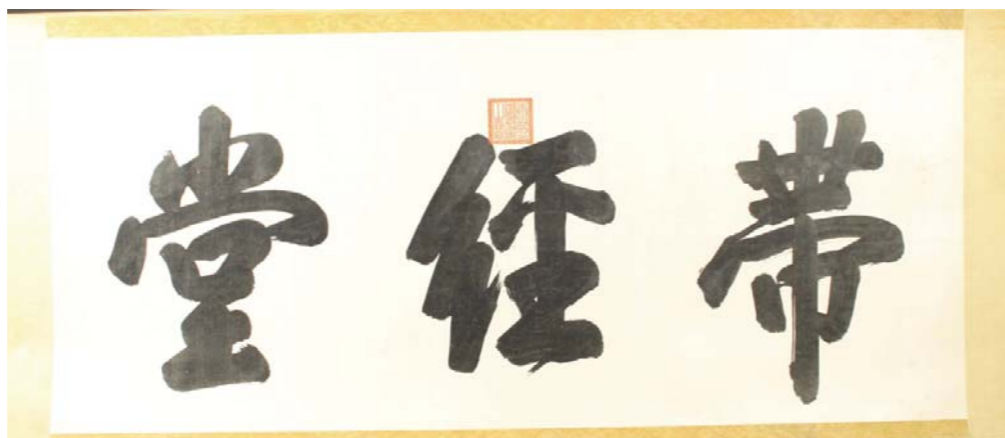 帶經堂